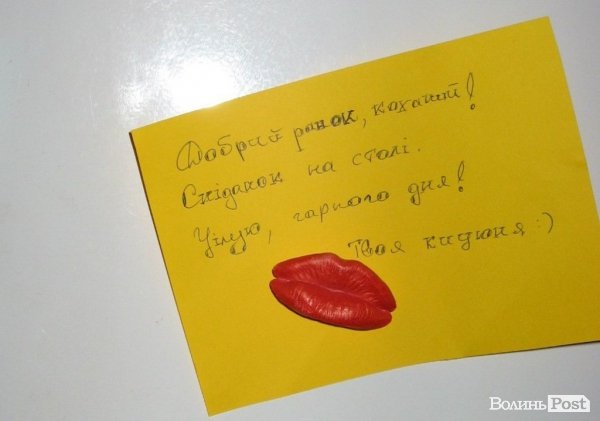 Добрий ранок, коханий!
Сніданок на столі.
Цілую, гарного дня!
Твоя кицюня :)
ВолиньPost